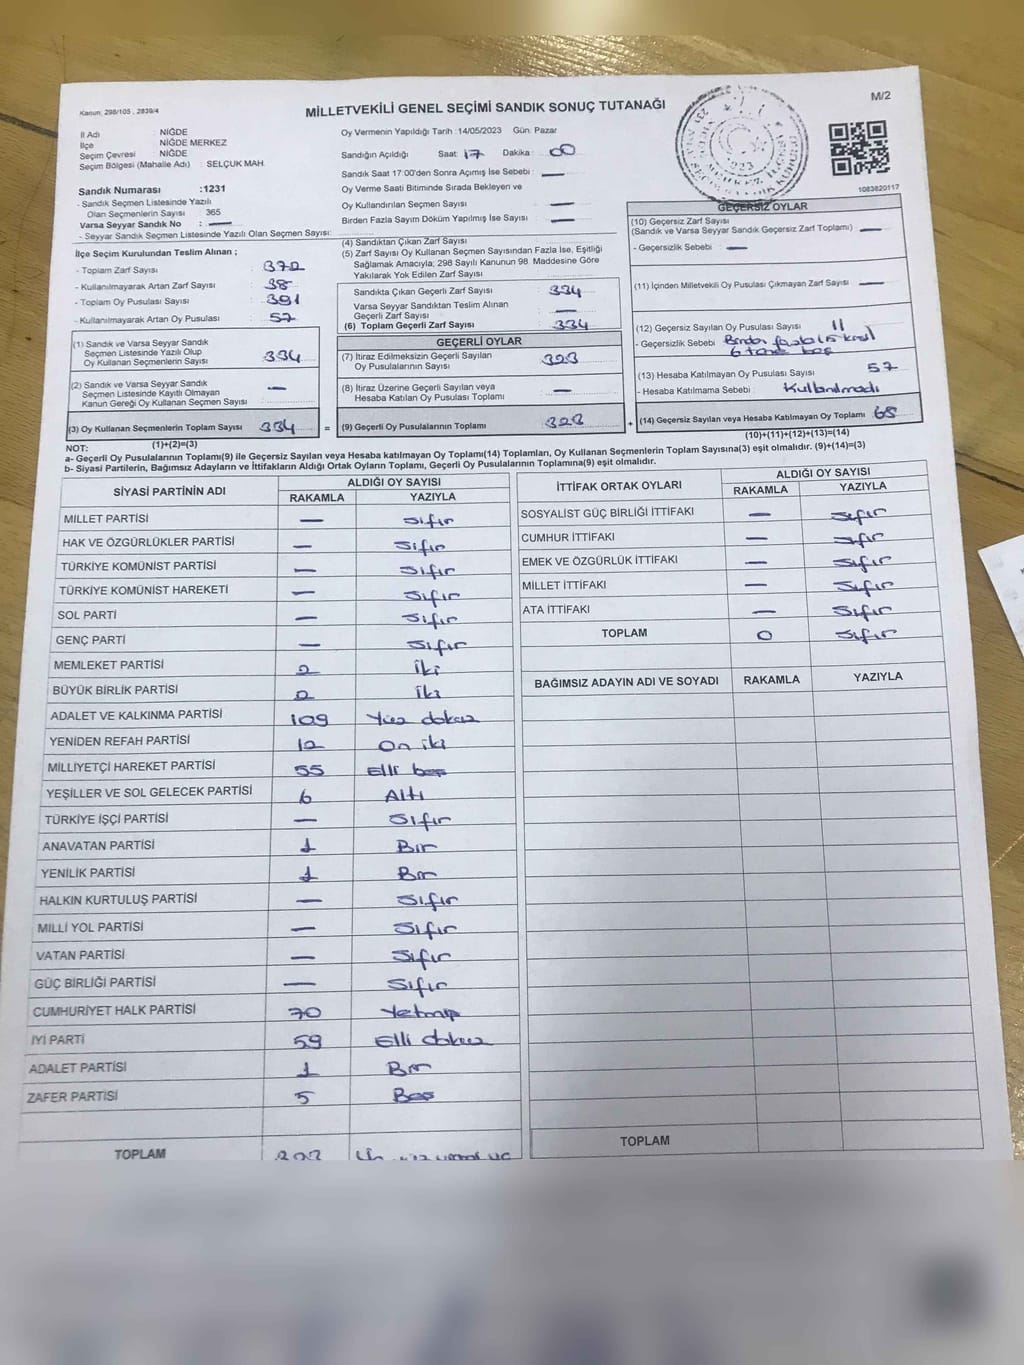 Kanun, 298/105 , 2839/4
MİLLETVEKİLİ GENEL SEÇİMİ SANDIK SONUÇ TUTANAĞI
M/2
İl Adı : NİĞDE
İlçe : NİĞDE MERKEZ
Seçim Çevresi : NİĞDE
Seçim Bölgesi (Mahalle Adı) : SELÇUK MAH.
Sandık Numarası :1231
- Sandık Seçmen Listesinde Yazılı
Olan Seçmenlerin Sayısı : 365
Varsa Seyyar Sandık No : —
- Seyyar Sandık Seçmen Listesinde Yazılı Olan Seçmen Sayısı:
Oy Vermenin Yapıldığı Tarih :14/05/2023 Gün. Pazar
Sandığın Açıldığı Saat: 17 Dakika : 00
Sandık Saat 17:00'den Sonra Açımış İse Sebebi : —
Oy Verme Saati Bitiminde Sırada Bekleyen ve
Oy Kullandırılan Seçmen Sayısı : —
Birden Fazla Sayım Döküm Yapılmış İse Sayısı : —
1083820117
İlçe Seçim Kurulundan Teslim Alınan ;
- Toplam Zarf Sayısı : 372
- Kullanılmayarak Artan Zarf Sayısı : 38
- Toplam Oy Pusulası Sayısı : 391
- Kullanılmayarak Artan Oy Pusulası : 57
(1) Sandık ve Varsa Seyyar Sandık
Seçmen Listesinde Yazılı Olup
Oy Kullanan Seçmenlerin Sayısı : 334
(2) Sandık ve Varsa Seyyar Sandık
Seçmen Listesinde Kayıtlı Olmayan
Kanun Gereği Oy Kullanan Seçmen Sayısı : —
(3) Oy Kullanan Seçmenlerin Toplam Sayısı : 334 =
(1)+(2)=(3)
(4) Sandıktan Çıkan Zarf Sayısı
(5) Zarf Sayısı Oy Kullanan Seçmen Sayısından Fazla İse, Eşitliği
Sağlamak Amacıyla; 298 Sayılı Kanunun 98. Maddesine Göre
Yakılarak Yok Edilen Zarf Sayısı
Sandıkta Çıkan Geçerli Zarf Sayısı : 334
Varsa Seyyar Sandıktan Teslim Alınan
Geçerli Zarf Sayısı : —
(6) Toplam Geçerli Zarf Sayısı : 334
GEÇERLİ OYLAR
(7) İtiraz Edilmeksizin Geçerli Sayılan
Oy Pusulasının Sayısı : 323
(8) İtiraz Üzerine Geçerli Sayılan veya
Hesaba Katılan Oy Pusulası Toplamı : —
(9) Geçerli Oy Pusulalarının Toplamı : 323 +
GEÇERSİZ OYLAR
(10) Geçersiz Zarf Sayısı
(Sandık ve Varsa Seyyar Sandık Geçersiz Zarf Toplamı) : —
- Geçersizlik Sebebi : —
(11) İçinden Milletvekili Oy Pusulası Çıkmayan Zarf Sayısı : —
(12) Geçersiz Sayılan Oy Pusulası Sayısı : 11
- Geçersizlik Sebebi : Birden fazla
6 tane boş
(13) Hesaba Katılmayan Oy Pusulası Sayısı : 57
- Hesaba Katılmama Sebebi : Kullanılmadı
(14) Geçersiz Sayılan veya Hesaba Katılmayan Oy Toplamı : 68
(10)+(11)+(12)+(13)=(14)
NOT:
a- Geçerli Oy Pusulalarının Toplamı(9) ile Geçersiz Sayılan veya Hesaba Katılmayan Oy Toplamı(14) Toplamları, Oy Kullanan Seçmenlerin Toplam Sayısına(3) eşit olmalıdır. (9)+(14)=(3)
b- Siyasi Partilerin, Bağımsız Adayların ve İttifakların Aldığı Ortak Oyların Toplamı, Geçerli Oy Pusulalarının Toplamına(9) eşit olmalıdır.
SİYASİ PARTİNİN ADI ALDIĞI OY SAYISI
RAKAMLA YAZIYLA
MİLLET PARTİSİ — Sıfır
HAK VE ÖZGÜRLÜKLER PARTİSİ — Sıfır
TÜRKİYE KOMÜNİST PARTİSİ — Sıfır
TÜRKİYE KOMÜNİST HAREKETİ — Sıfır
SOL PARTİ — Sıfır
GENÇ PARTİ — Sıfır
MEMLEKET PARTİSİ 2 İki
BÜYÜK BİRLİK PARTİSİ 2 İki
ADALET VE KALKINMA PARTİSİ 109 Yüz dokuz
YENİDEN REFAH PARTİSİ 12 On iki
MİLLİYETÇİ HAREKET PARTİSİ 55 Elli beş
YEŞİLLER VE SOL GELECEK PARTİSİ 6 Altı
TÜRKİYE İŞÇİ PARTİSİ — Sıfır
ANAVATAN PARTİSİ 1 Bir
YENİLİK PARTİSİ 1 Bir
HALKIN KURTULUŞ PARTİSİ — Sıfır
MİLLİ YOL PARTİSİ — Sıfır
VATAN PARTİSİ — Sıfır
GÜÇ BİRLİĞİ PARTİSİ — Sıfır
CUMHURİYET HALK PARTİSİ 70 Yetmiş
İYİ PARTİ 59 Elli dokuz
ADALET PARTİSİ 1 Bir
ZAFER PARTİSİ 5 Beş
TOPLAM
İTTİFAK ORTAK OYLARI ALDIĞI OY SAYISI
RAKAMLA YAZIYLA
SOSYALİST GÜÇ BİRLİĞİ İTTİFAKI — Sıfır
CUMHUR İTTİFAKI — Sıfır
EMEK VE ÖZGÜRLÜK İTTİFAKI — Sıfır
MİLLET İTTİFAKI — Sıfır
ATA İTTİFAKI — Sıfır
TOPLAM 0 Sıfır
BAĞIMSIZ ADAYIN ADI VE SOYADI RAKAMLA YAZIYLA
TOPLAM